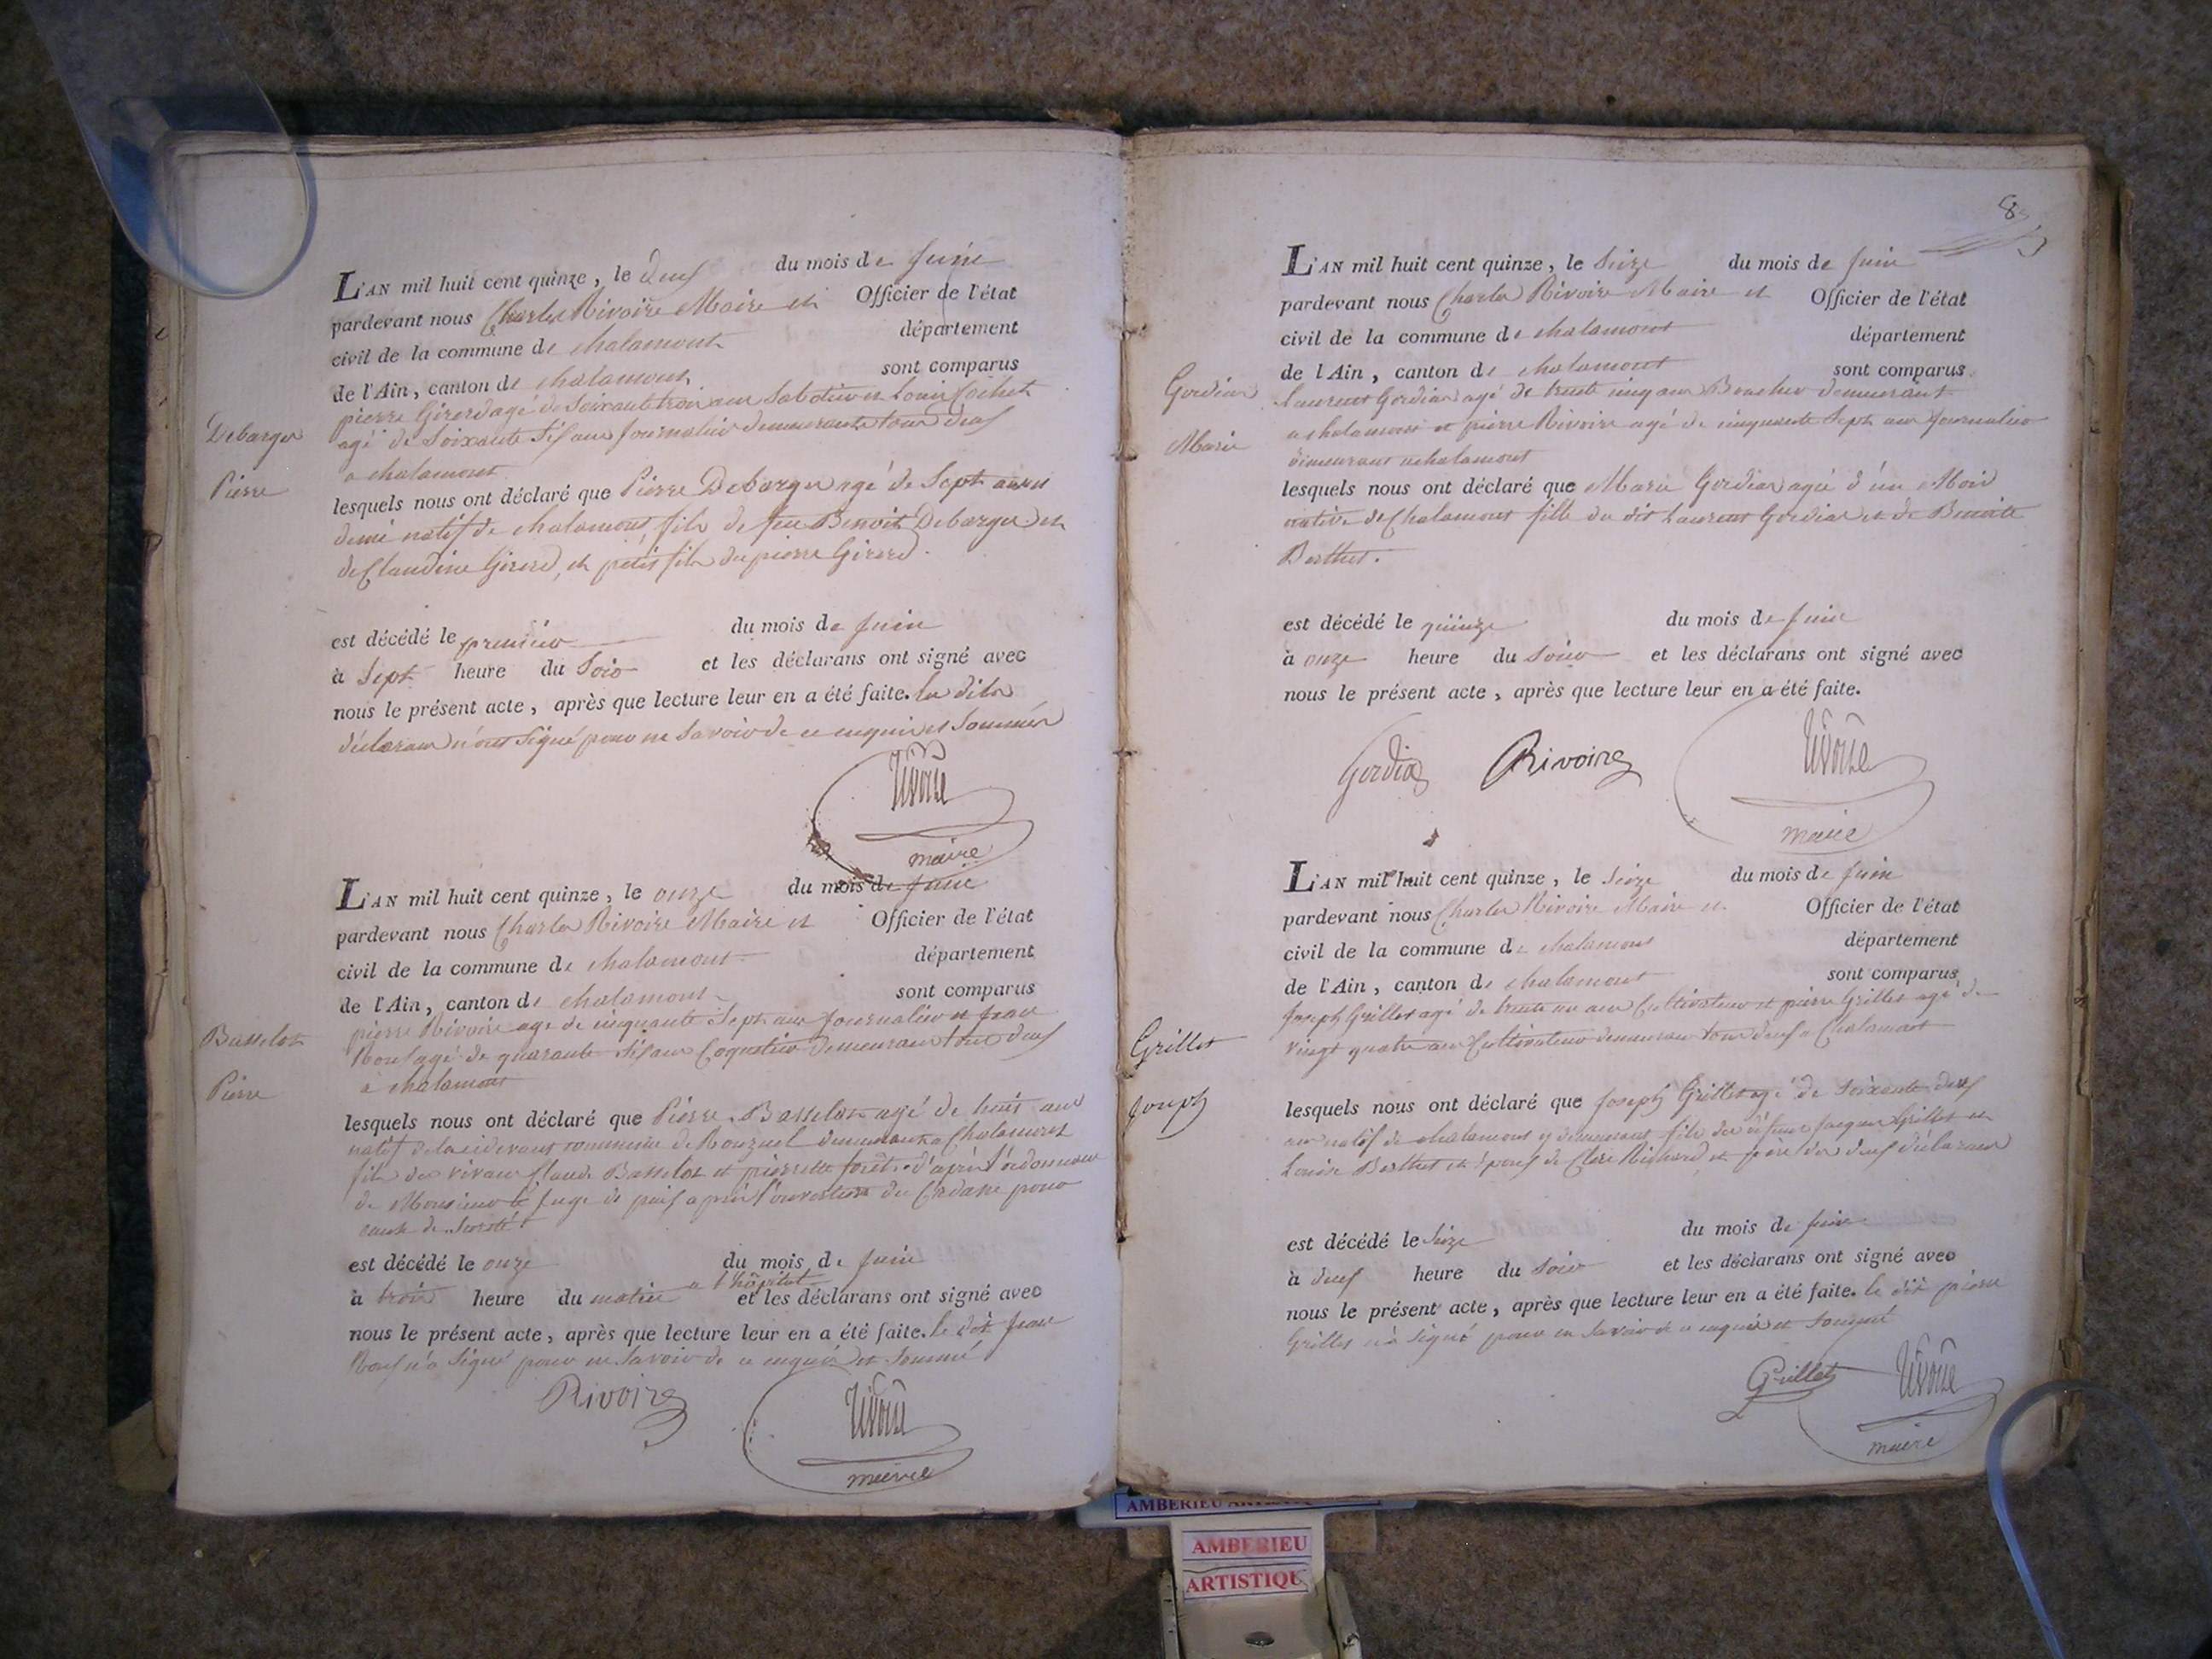 L'AN mil huit cent quinze, le deux du mois de Juin
pardevant nous Charles Rivoire Maire et Officier de l'état
civil de la commune de chalamont département
de l'Ain, canton de chalamont sont comparus
pierre Girerd agé de Soixante trois ans Sabotier et Louis Cochet
agé de Soixante Six ans Journalier demeurants tous deux
a chalamont
Debarger
Pierre
lesquels nous ont déclaré que Pierre Debarger agé de Sept ans et
demi natif de chalamont, fils de feu Benoit Debarger et
de Claudine Girerd, et petit fils du pierre Girerd.
est décédé le premier du mois de Juin
à Sept heure du Soir et les déclarans ont signé avec
nous le présent acte, après que lecture leur en a été faite. les dits
déclarans n'ont Signé pour ne Savoir de ce enquis et Sommés
Rivoire
maire
L'AN mil huit cent quinze, le onze du mois de Juin
pardevant nous Charles Rivoire Maire et Officier de l'état
civil de la commune de chalamont département
de l'Ain, canton de chalamont sont comparus
pierre Rivoire age de cinquante Sept ans Journalier et Jean
Roux agé de quarante Six ans Coquetier demeurant tous deux
à chalamont
Basselot
Pierre
lesquels nous ont déclaré que Pierre Basselot agé de huit ans
natif de la cidevant commune de Ronzuel demeurant a Chalamont
fils des vivans Claude Basselot et pierrette forêt. d'après l'ordonnance
de Monsieur le Juge de paix après l'ouverture du Cadavre pour
cause de
est décédé le onze du mois de Juin
à trois heure du matin a l'hôpital et les déclarans ont signé avec
nous le présent acte, après que lecture leur en a été faite. le dit Jean
Roux n'a Signé pour ne Savoir de ce enquis et Sommé
Rivoire
Rivoire
maire
8
L'AN mil huit cent quinze, le Seize du mois de Juin
pardevant nous Charles Rivoire Maire et Officier de l'état
civil de la commune de chalamont département
de l'Ain, canton de chalamont sont comparus
Laurent Gordian agé de trente cinq ans Boucher demeurant
a chalamont et pierre Rivoire agé de cinquante Sept ans Journalier
demeurant a chalamont
Gordian
Marie
lesquels nous ont déclaré que Marie Gordian agée d'un Mois
native de Chalamont fille du dit Laurent Gordian et de Benoite
Berthet.
est décédé le quinze du mois de Juin
à onze heure du Soir et les déclarans ont signé avec
nous le présent acte, après que lecture leur en a été faite.
Gordian Rivoire Rivoire
maire
L'AN mil huit cent quinze, le Seize du mois de Juin
pardevant nous Charles Rivoire Maire et Officier de l'état
civil de la commune de chalamont département
de l'Ain, canton de chalamont sont comparus
Joseph Grillet agé de trente un ans Cultivateur et pierre Grillet agé de
vingt quatre ans Cultivateur demeurant tous deux a Chalamont
Grillet
Joseph
lesquels nous ont déclaré que Joseph Grillet agé de Soixante deux
ans natif de chalamont y demeurant fils des défunts Jacques Grillet et
Louise Berthet et époux de Claire Richard et père des deux déclarans
est décédé le Seize du mois de Juin
à deux heure du Soir et les déclarans ont signé avec
nous le présent acte, après que lecture leur en a été faite. le dit pierre
Grillet n'a Signé pour ne Savoir de ce enquis et Sommé
Grillet Rivoire
maire
AMBERIEU ARTISTIQUE
AMBERIEU
ARTISTIQUE